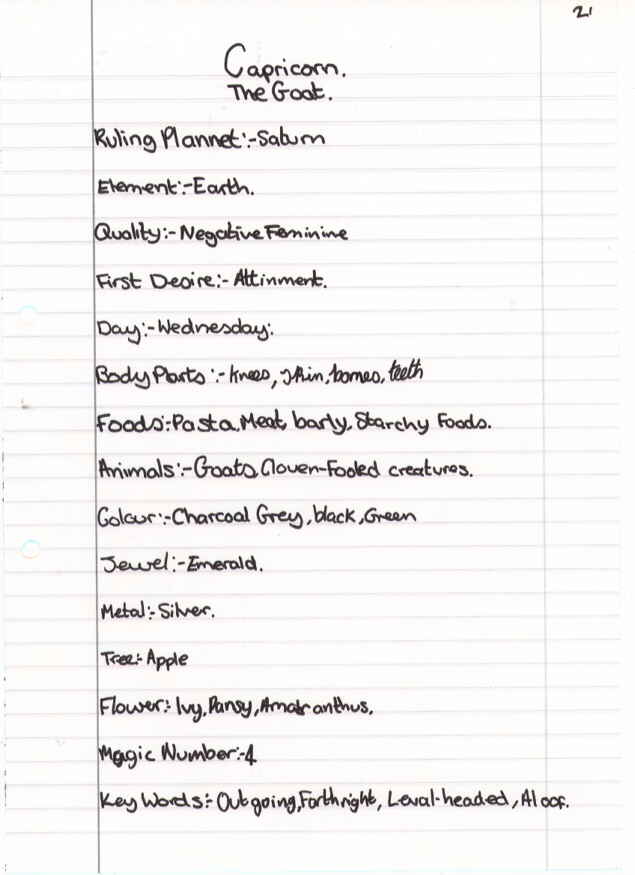 21
Capricorn.
The Goat.
Ruling Plannet:-Saturn
Element:-Earth.
Quality:- Negative Feminine
First Desire:- Attinment.
Day:-Wednesday.
Body Parts:- Knees, Skin, bones, teeth
Foods:-Pasta, Meat, barly, Starchy Foods.
Animals:-Goats, Cloven-Footed creatures.
Colour:-Charcoal Grey, black, Green
Jewel:-Emerald.
Metal:- Silver.
Tree:- Apple
Flower:- Ivy, Pansy, Amaranthus.
Magic Number:-4
Key Words:- Outgoing, Forthright, Leval-headed, Aloof.